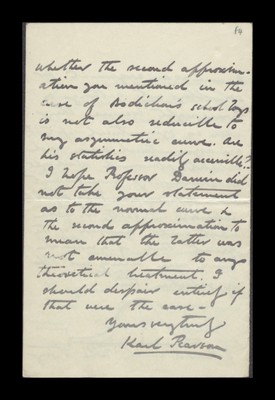 14
whether the second approxim-
ation you mentioned in the
case of Bodichai's school boys
is not also reducible to
my asymmetric curve. Are
his statistics readily accessible?
I hope Professor Darwin did
not take your statement
as to the normal curve &
the second approximation to
mean that the latter was
not amenable to any
theoretical treatment. I
should despair entirely if
that were the case –
Yours very truly
Karl Pearson